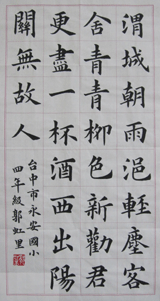 渭城朝雨浥輕塵客
舍青青柳色新勸君
更盡一杯酒西出陽
關無故人
台中市永安國小
四年級郭虹里